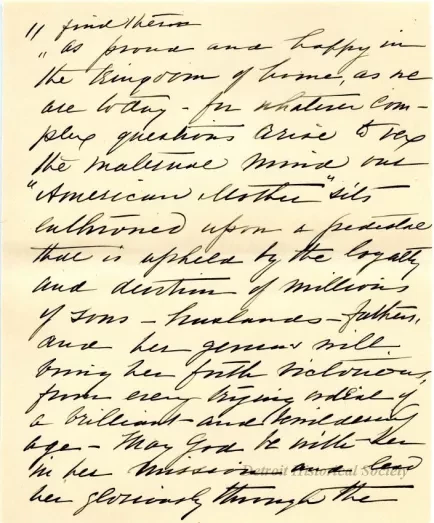 " find them
" as proud and happy in
the Kingdom of home, as we
are today - for whatever com-
plex questions arise to vex
the maternal mind our
"American Mother" sits
enthroned upon a pedestal
that is upheld by the loyalty
and devotion of millions
of sons - husbands - fathers,
and her genius will
bring her forth victorious,
from every trying ordeal of
a brilliant - and bewildering
age - May God be with - her
in her mission and lead
her gloriously through the
Detroit Historical Society